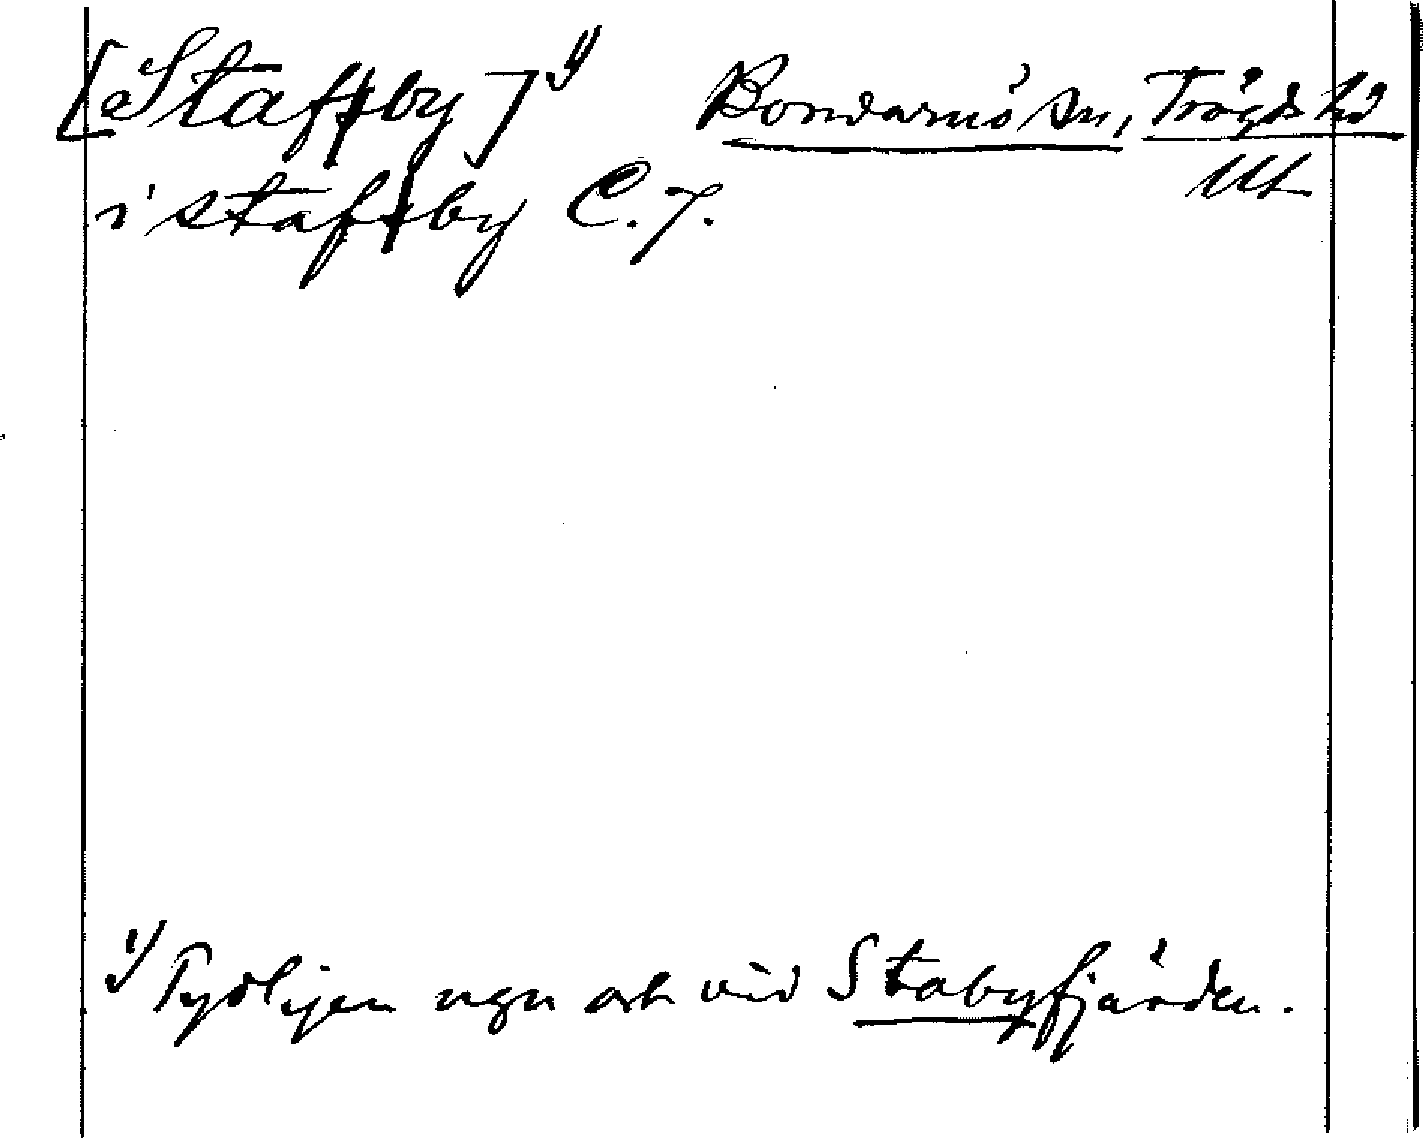 [Stafsby] 1) Bondarnö sn, Trögds hd
i stafsby C. 7. Ut
1) Tydligen ngn ort vid Stabyfjärden.